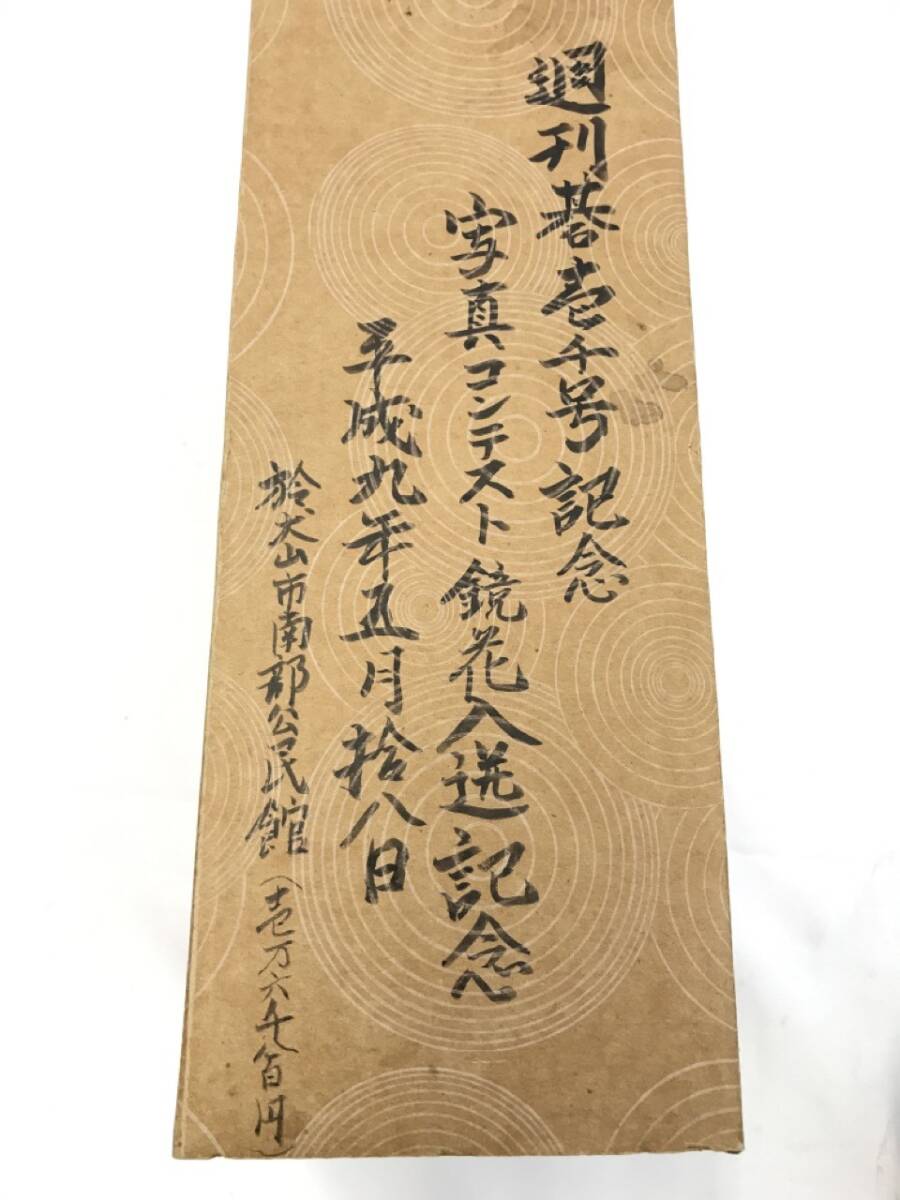 週刊碁壱千号記念
写真コンテスト鏡花入選記念
平成九年五月拾八日
於犬山市南部公民館(壱万六千百円)